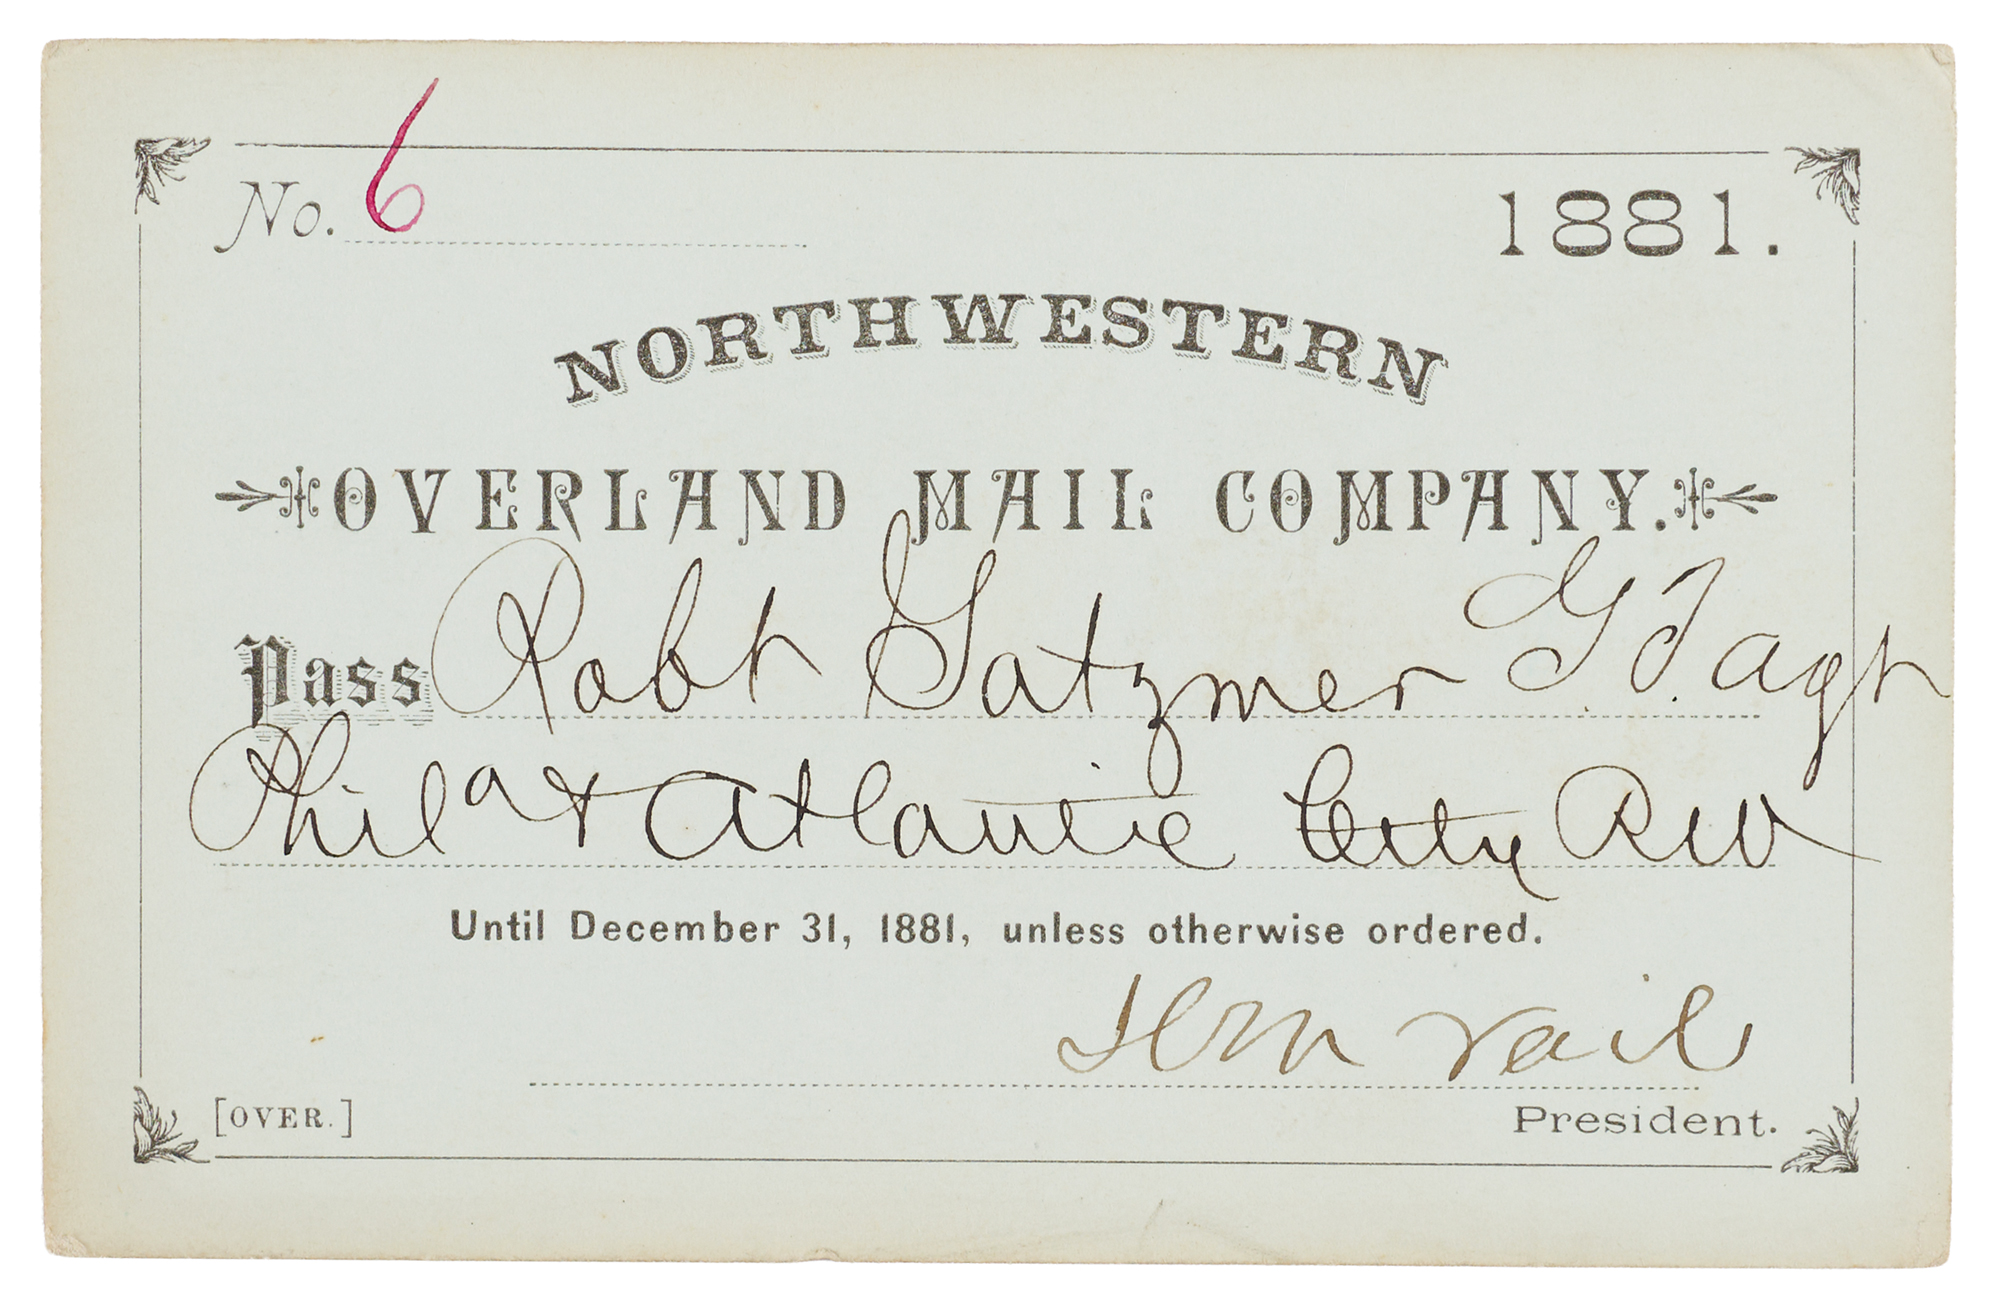 No. 6 1881.
NORTHWESTERN
OVERLAND MAIL COMPANY.
Pass Robt Gatzmer G T. Agt
Phila & Atlantic City RW
Until December 31, 1881, unless otherwise ordered.
H M Vail
[OVER.] President.